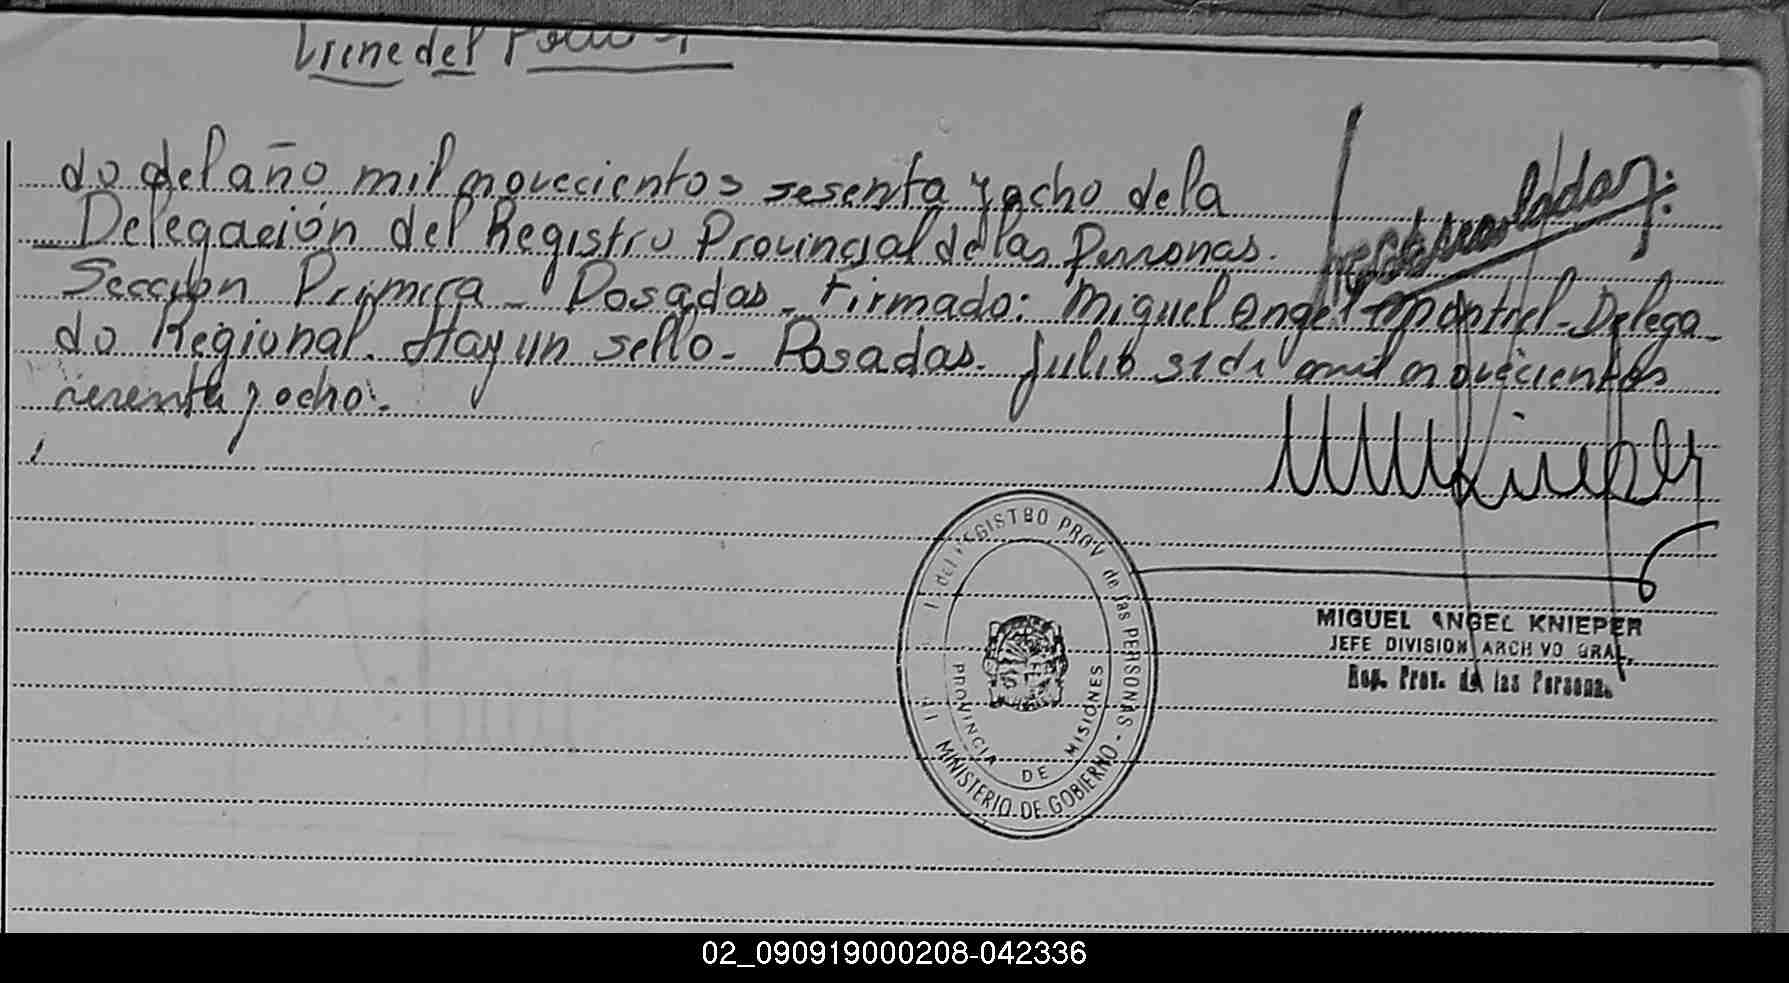 Viene del Folio
do del año mil novecientos sesenta y ocho de la
Delegación del Registro Provincial de las Personas.
Sección Primera - Posadas - Firmado: Miguel Angel Montiel - Delega
do Regional. Hay un sello - Posadas. Julio 31 de mil novecientos
sesenta y ocho.
del REGISTRO PROV de las PERSONAS - MINISTERIO DE GOBIERNO
PROVINCIA DE MISIONES
MIGUEL ANGEL KNIEPER
JEFE DIVISION ARCH VO GRAL.
Reg. Prov. de las Persona.
02_090919000208-042336